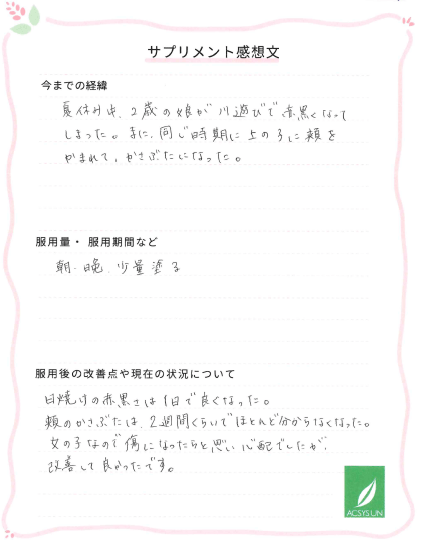 サプリメント感想文
今までの経緯
夏休み中、2歳の娘が川遊びで赤黒くなって
しまった。また、同じ時期に上の子に頬を
かまれて、かさぶたになった。
服用量・ 服用期間など
朝・晩、少量塗る
服用後の改善点や現在の状況について
日焼けの赤黒さは1日で良くなった。
頬のかさぶたは、2週間くらいでほとんど分からなくなった。
女の子なので傷になったらと思い心配でしたが、
改善して良かったです。
ACSYS LIN